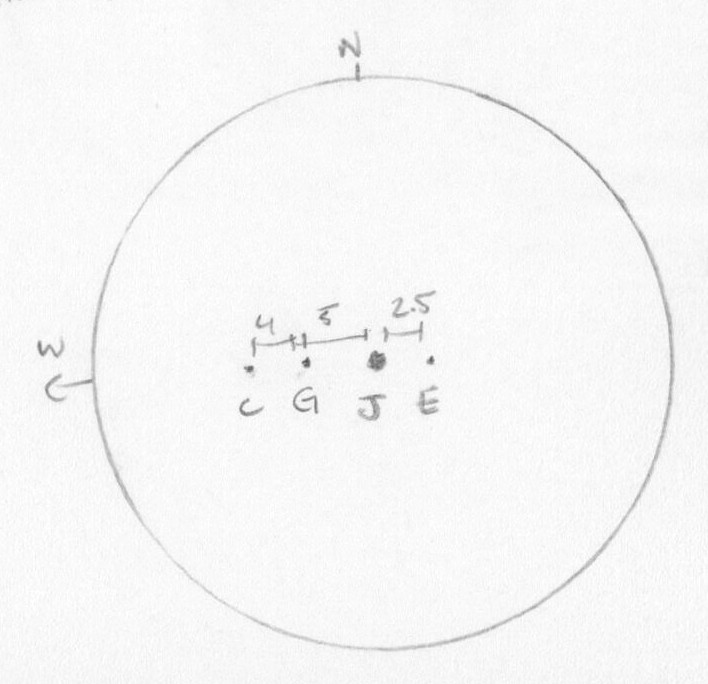 N
4 5 2.5
W
C G J E